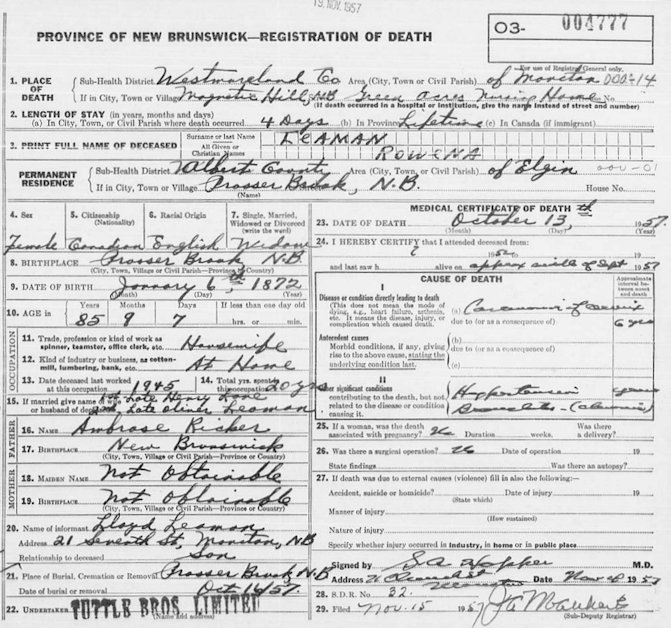 19. NOV. 1957
PROVINCE OF NEW BRUNSWICK—REGISTRATION OF DEATH
O3- 004777
For use of Registrar General only.
1. PLACE OF DEATH
Sub-Health District Westmoreland Co Area (City, Town or Civil Parish) of Moncton 000-14
If in City, Town or Village Magnetic Hill, NB Green Acres Nursing Home No
(If death occurred in a hospital or institution, give the name instead of street and number)
2. LENGTH OF STAY (in years, months and days)
(a) In City, Town, or Civil Parish where death occurred 4 Days (b) In Province Lifetime (c) In Canada (if immigrant)
3. PRINT FULL NAME OF DECEASED
Surname or last Name LEAMAN
All Given or Christian Names ROWENA
PERMANENT RESIDENCE
Sub-Health District Albert County Area (City, Town or Civil Parish) of Elgin 000-01
If in City, Town or Village Prosser Brook, N.B. House No.
(Name)
4. Sex 5. Citizenship (Nationality) 6. Racial Origin 7. Single, Married, Widowed or Divorced (write the word)
Female Canadian English Widow
8. BIRTHPLACE Prosser Brook N.B
(City, Town, Village or Civil Parish—Province or Country)
9. DATE OF BIRTH January 6th, 1872
(Month) (Day) (Year)
10. AGE in Years Months Days If less than one day old
85 9 7 hrs. or min.
OCCUPATION
11. Trade, profession or kind of work as spinner, teamster, office clerk, etc. Housewife
12. Kind of industry or business, as cotton-mill, lumbering, bank, etc. At Home
13. Date deceased last worked at this occupation 1945 14. Total yrs. spent in this occupation 20 yrs
15. If married give name of wife or husband of deceased 1st Late Henry Lane
2nd, Late Oliver Leaman
FATHER
16. NAME Ambrose Ricker
17. BIRTHPLACE New Brunswick
(City, Town, Village or Civil Parish—Province or Country)
MOTHER
18. MAIDEN NAME Not Obtainable
19. BIRTHPLACE Not Obtainable
(City, Town, Village or Civil Parish—Province or Country)
20. Name of informant Lloyd Leaman
Address 21 Seventh St, Moncton, NB
Relationship to deceased Son
21. Place of Burial, Cremation or Removal Prosser Brook N.B
Date of burial or removal Oct 16/57.
22. UNDERTAKER TUTTLE BROS. LIMITED
(Name and address)
MEDICAL CERTIFICATE OF DEATH
23. DATE OF DEATH October 13, th 1957
(Month) (Day) (Year)
24. I HEREBY CERTIFY that I attended deceased from:
1952 to 19
and last saw h alive on approx middle of Sept 1957
CAUSE OF DEATH
Approximate interval between onset and death
I
Disease or condition directly leading to death
(This does not mean the mode of dying, e.g., heart failure, asthenia, etc. It means the disease, injury, or complication which caused death.
(a) Carcinoma of cervix 6 yrs
due to (or as a consequence of)
Antecedent causes
Morbid conditions, if any, giving rise to the above cause, stating the underlying condition last.
(b)
due to (or as a consequence of)
(c)
II
Other significant conditions contributing to the death, but not related to the disease or condition causing it.
Hypertension years
Bronchitis - (chronic)
25. If a woman, was the death associated with pregnancy? Duration weeks. Was there a delivery?
26. Was there a surgical operation? Date of operation 19
State findings Was there an autopsy?
27. If death was due to external causes (violence) fill in also the following:—
Accident, suicide or homicide? Date of injury 19
(State which)
Manner of injury
(How sustained)
Nature of injury
Specify whether injury occurred in Industry, in home or in public place
Signed by M.D.
Address Date Nov 1957
28. S.D.R. No. 32.
29. Filed Nov. 15 1957
(Sub-Deputy Registrar)